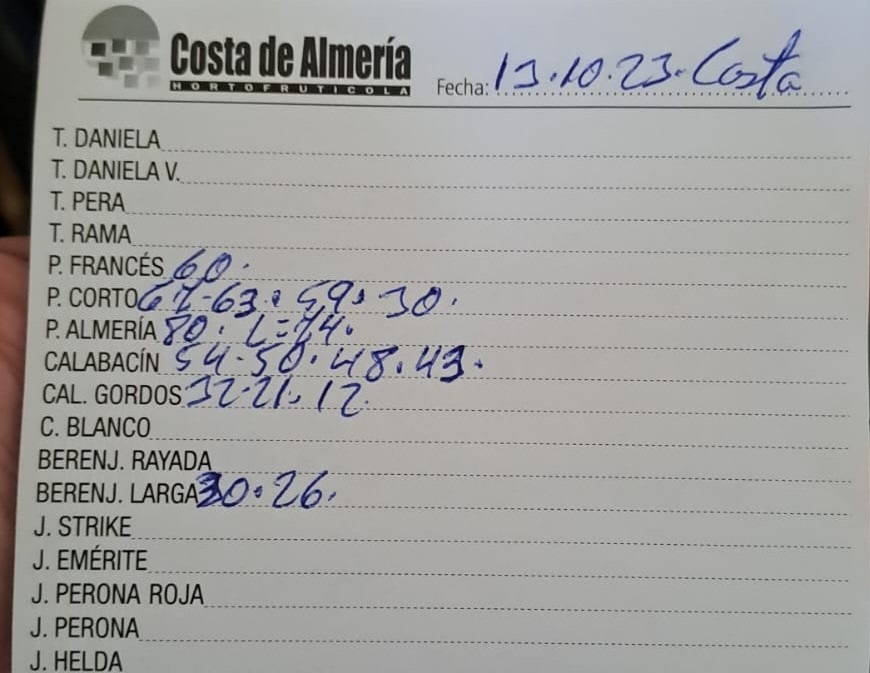 Costa de Almería
HORTOFRUTICOLA
Fecha: 13.10.23. Costa
T. DANIELA
T. DANIELA V.
T. PERA
T. RAMA
P. FRANCÉS 60.
P. CORTO 67-63. 59. 30.
P. ALMERÍA 80. L=74.
CALABACÍN 54-50. 48. 43.
CAL. GORDOS 32-21. 12
C. BLANCO
BERENJ. RAYADA
BERENJ. LARGA 30. 26.
J. STRIKE
J. EMÉRITE
J. PERONA ROJA
J. PERONA
J. HELDA